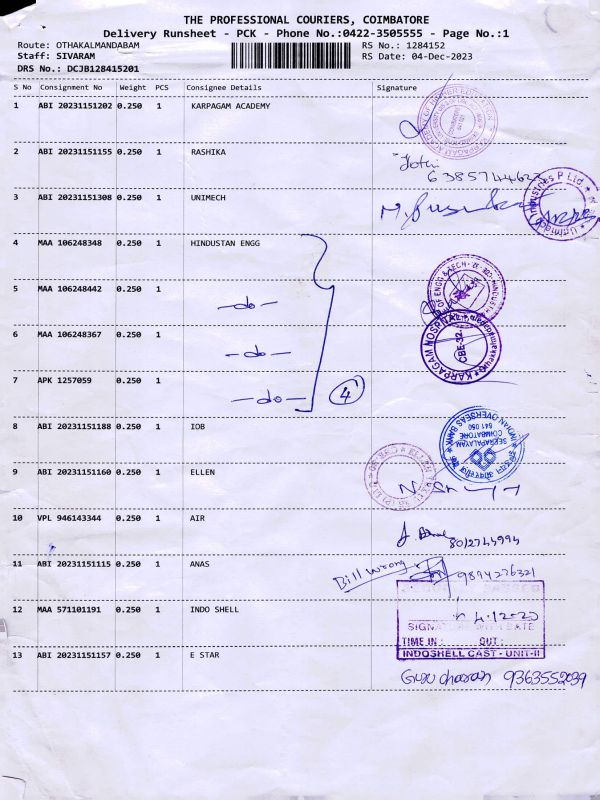 THE PROFESSIONAL COURIERS, COIMBATORE
Delivery Runsheet - PCK - Phone No.:0422-3505555 - Page No.:1
Route: OTHAKALMANDABAM RS No.: 1284152
Staff: SIVARAM RS Date: 04-Dec-2023
DRS No.: DCJB128415201
S No Consignment No Weight PCS Consignee Details Signature
1 ABI 20231151202 0.250 1 KARPAGAM ACADEMY
2 ABI 20231151155 0.250 1 RASHIKA
3 ABI 20231151308 0.250 1 UNIMECH
4 MAA 106248348 0.250 1 HINDUSTAN ENGG
5 MAA 106248442 0.250 1 -do-
6 MAA 106248367 0.250 1 -do-
KARPAGAM HOSPITAL
CBE-32
7 APK 1257059 0.250 1 -do- 4
8 ABI 20231151188 0.250 1 IOB
INDIAN OVERSEAS BANK
SEERAPALAYAM
COIMBATORE
641 050
9 ABI 20231151160 0.250 1 ELLEN
10 VPL 946143344 0.250 1 AIR
8012744994
11 ABI 20231151115 0.250 1 ANAS
Bill wrong 9894276321
12 MAA 571101191 0.250 1 INDO SHELL
DATE
TIME IN : OUT :
INDOSHELL CAST - UNIT-II
13 ABI 20231151157 0.250 1 E STAR
Guru charan 9363552039